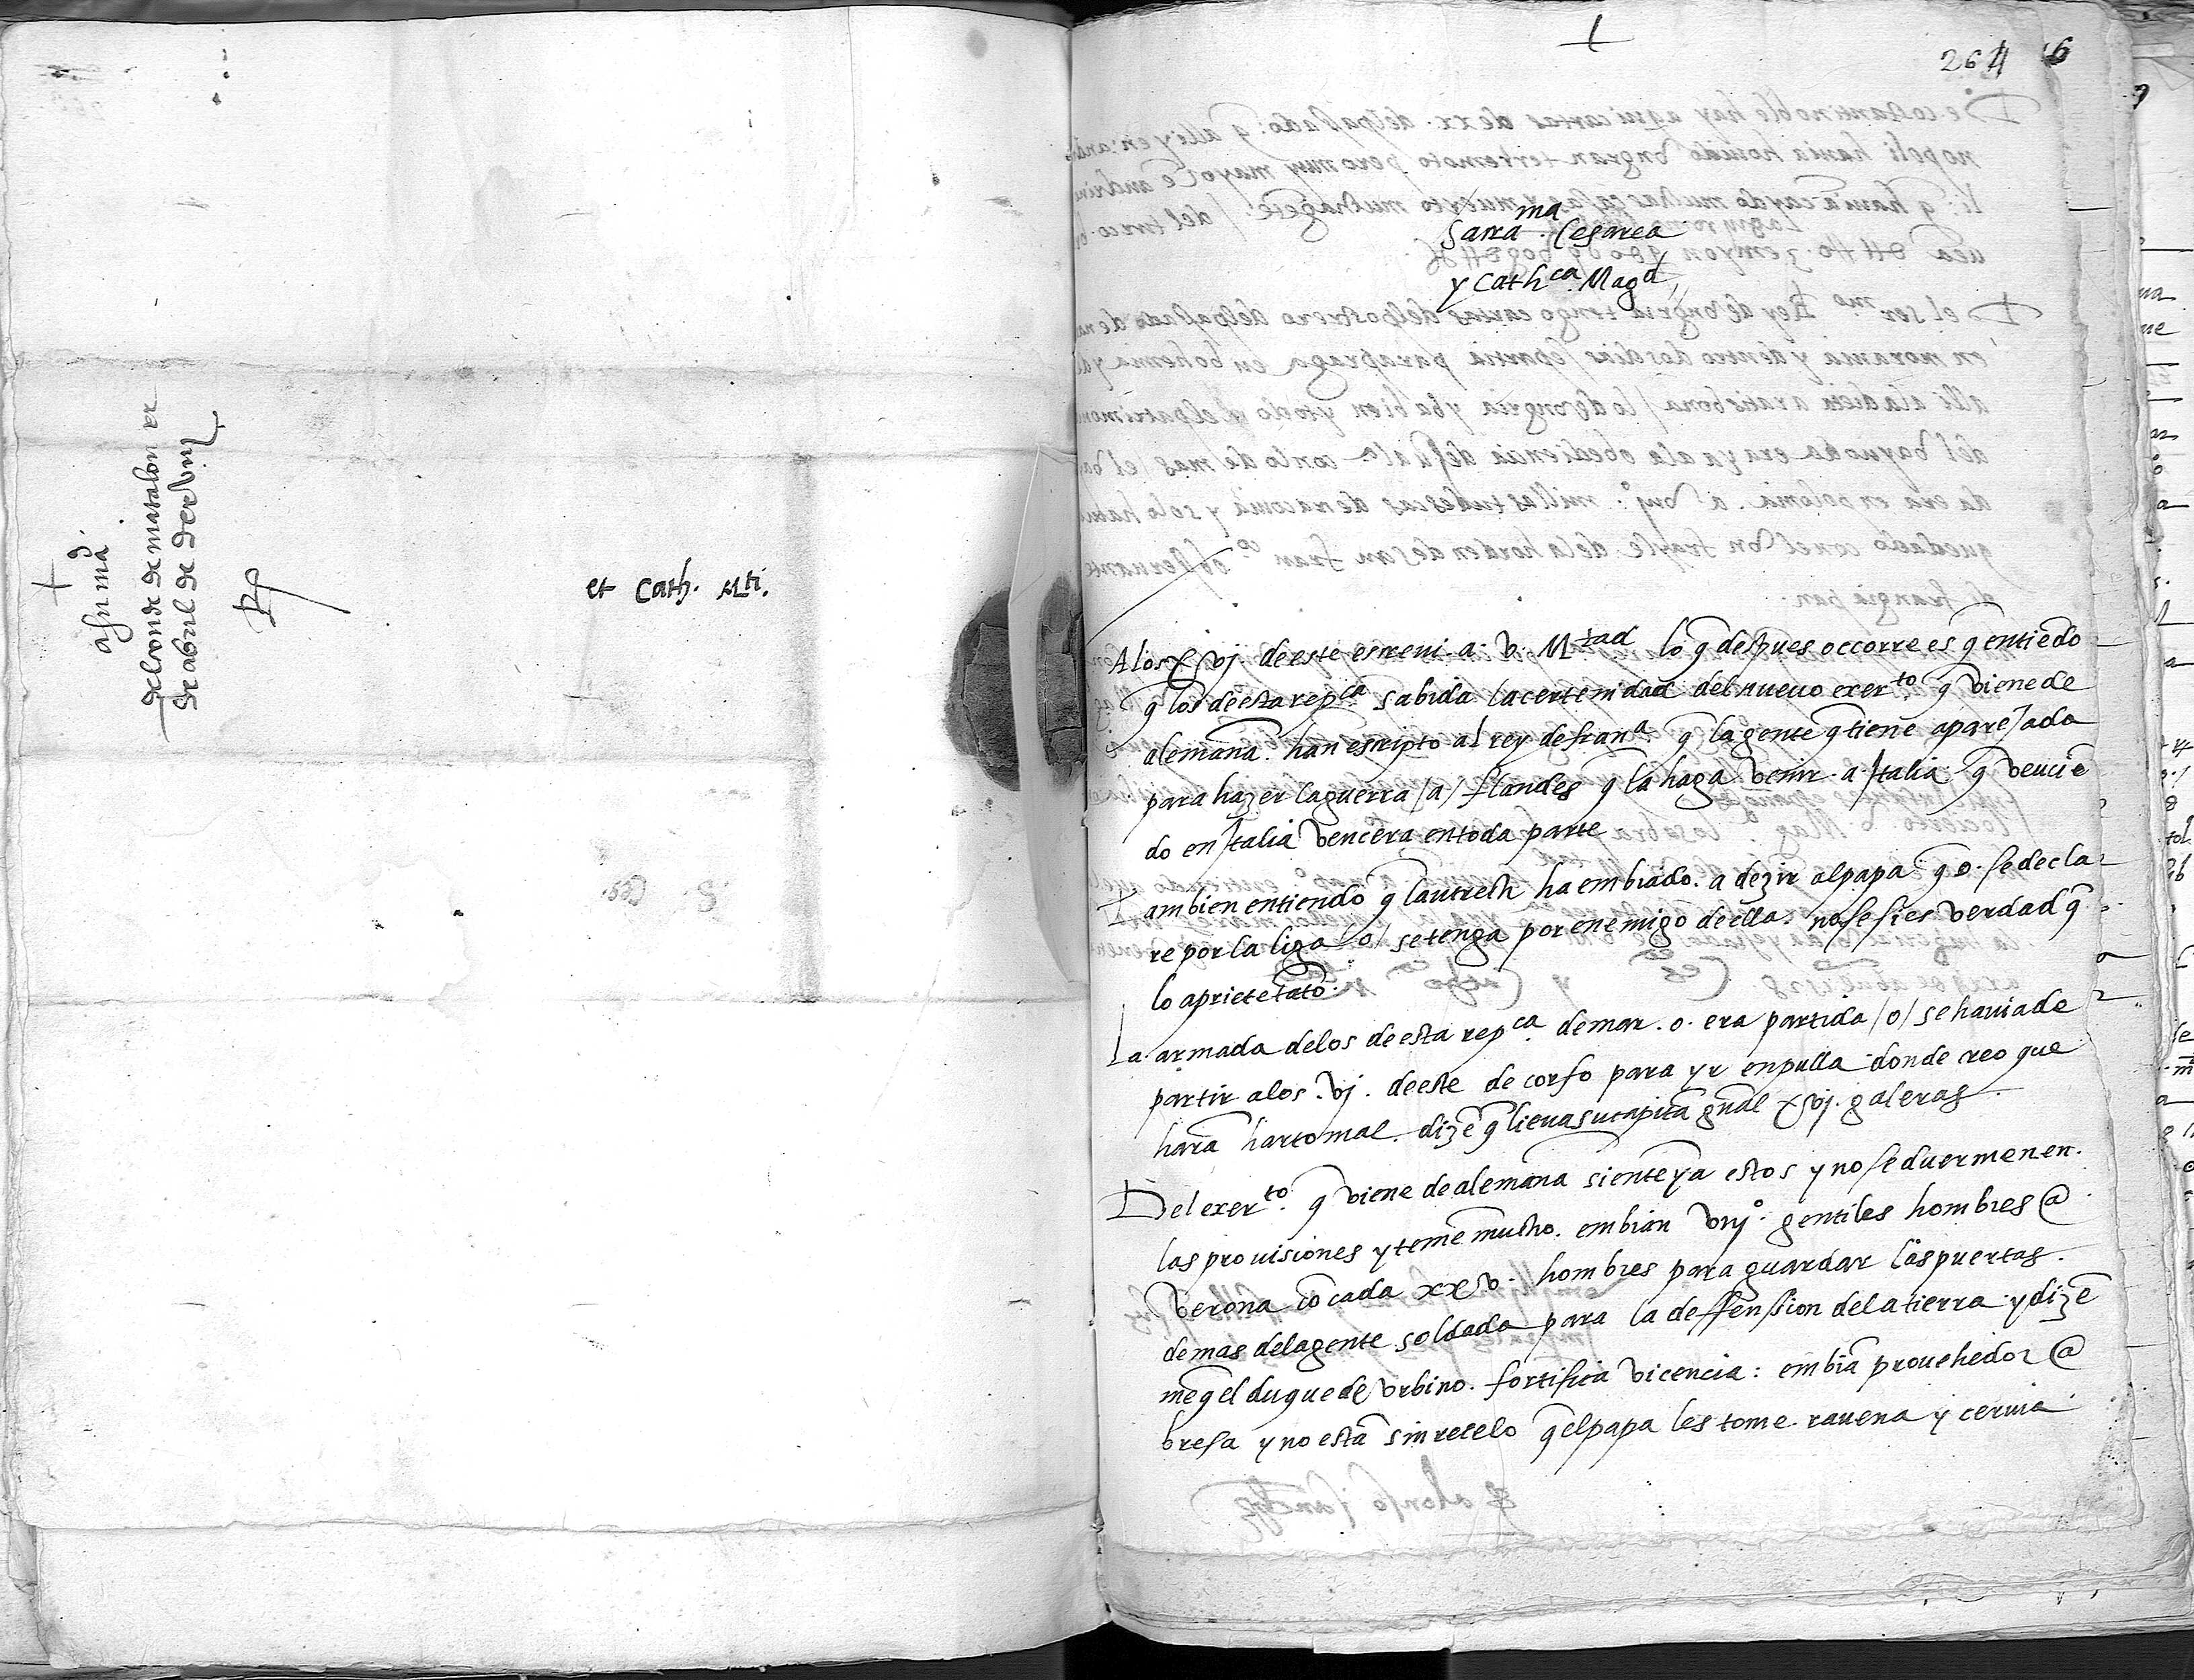 +
a su mag.
del conde de matalon
de abril de
Rta
et Cath. Mti.
+
264 6
Sacra. Cesarea
y Cathca. Magd
A los xvj de este escreui a. v. Mtad lo q̃ despues occorre es q̃ entiẽdo
q̃ los de esta repca. sabida la certenidad del nueuo exerto. q̃ viene de
alemaña. han escripto al rey de frana. q̃ la gente q̃ tiene aparejada
para hazer la guerra /a/ flandes q̃ la haga venir. a Italia q̃ vencie
do en Italia vencera en toda parte
Tambien entiendo q̃ lautrech ha embiado. a dezir al papa q̃ o. se decla
re por la liga /o/ se tenga por enemigo de ella. no se si es verdad q̃
lo apriete tãto.
La armada de los de esta repca. de mar. o. era partida /o/ se hauia de
partir a los .vj. de este de corfo para yr en pulla donde creo que
harã harto mal. dizẽ q̃ lieua su capitã gñal xvj. galeras
Del exerto. q̃ viene de alemaña sientẽ ya estos y no se duermen en.
las prouisiones y temẽ mucho. embian gentiles hombres @
verona cõ cada xxv. hombres para guardar las puertas.
demas de la gente soldada para la deffension de la tierra y dizẽ
me q̃ el duque de vrbino. fortifica vicencia: embiã prouehedor @
bresa y no estã sin recelo q̃ el papa les tome rauena y ceruia